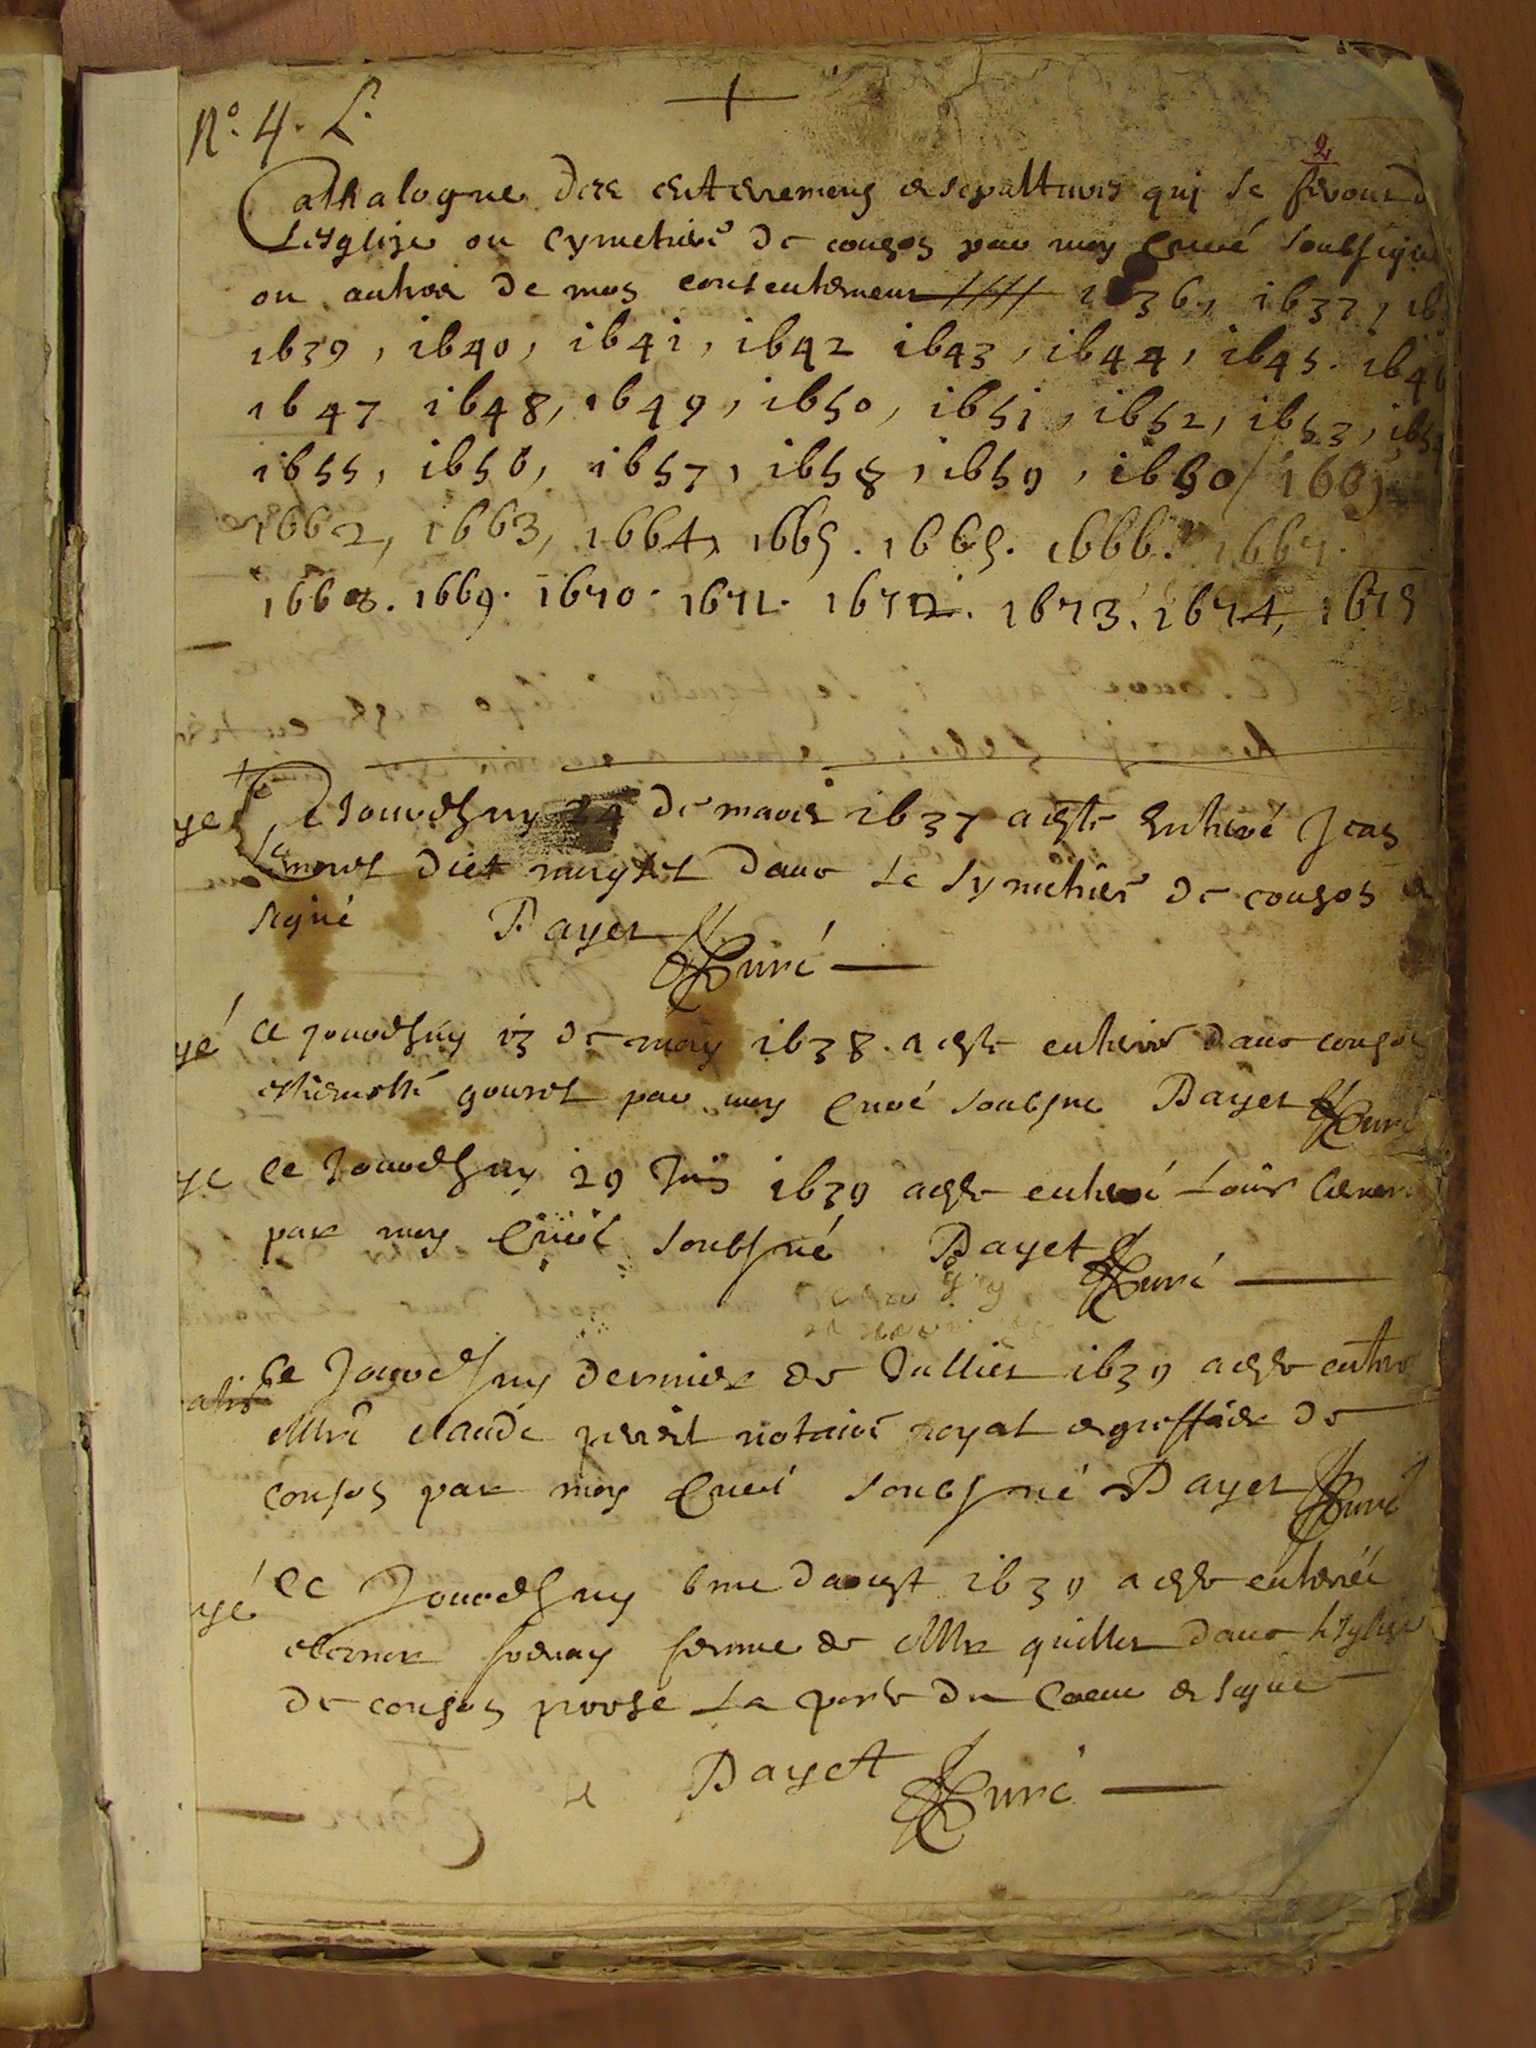 N.º 4. L.
2
Cathalogue des enterremens et sepultures qui se feront d
Lesglise ou cymetiere de cousos par moy Curé soubsigné
ou autres de mon consentement 1636, 1637, 16
1639, 1640, 1641, 1642 1643, 1644, 1645. 1646
1647 1648, 1649, 1650, 1651, 1652, 1653, 165
1655, 1656, 1657, 1658, 1659, 1660 / 1661
1662, 1663, 1664, 1665. 1665. 1666. 1667.
1668. 1669. 1670. 1671. 1672. 1673. 1674, 1675
Ce Jourdhuy 24 de mars 1637 a esté enterré Jean
dict dans le Symetiere de cousos et
signé Bayet Curé
yé Ce jourdhuy 13 de may 1638. a esté enterré dans cousos
gouret par moy Curé soubsne Bayet Curé
yé Ce Jourdhuy 29 Juin 1639 a esté enterré Louis
par moy Curé soubsné Bayet Curé
Ce Jourdhuy dernier de Juillet 1639 a esté enterré
Mre claude perret notaire royal et greffier de
cousos par moy Curé soubsné Bayet Curé
yé Ce Jourdhuy 6me daoust 1639 a esté enterrée
femme de Mre quillet dans lesglise
de cousos proche la porte du Coeur et signé
Bayet Curé